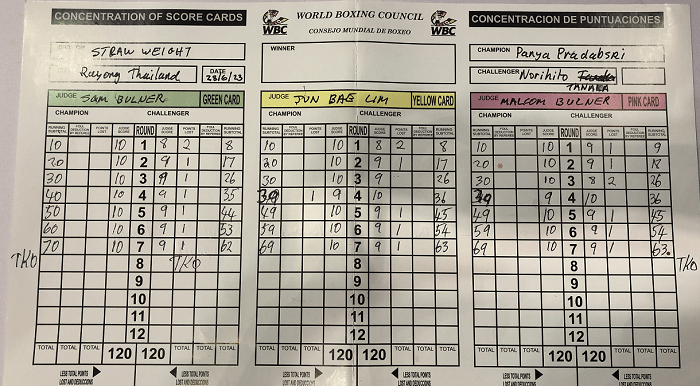 CONCENTRATION OF SCORE CARDS
WORLD BOXING COUNCIL
CONSEJO MUNDIAL DE BOXEO
WBC
WBC
CONCENTRACION DE PUNTUACIONES
STRAW WEIGHT
WINNER
CHAMPION Panya Pradabsri
Rayong Thailand DATE 28/6/23
CHALLENGER Norihito
TANAKA
JUDGE SAM BULNER GREEN CARD
JUDGE JUN BAE LIM YELLOW CARD
JUDGE MALCOM BULNER PINK CARD
CHAMPION CHALLENGER CHAMPION CHALLENGER CHAMPION CHALLENGER
RUNNING SUBTOTAL FOUL DEDUCTION BY REFEREE POINTS LOST JUDGE SCORE ROUND JUDGE SCORE POINTS LOST FOUL DEDUCTION BY REFEREE RUNNING SUBTOTAL
RUNNING SUBTOTAL FOUL DEDUCTION BY REFEREE POINTS LOST JUDGE SCORE ROUND JUDGE SCORE POINTS LOST FOUL DEDUCTION BY REFEREE RUNNING SUBTOTAL
RUNNING SUBTOTAL FOUL DEDUCTION BY REFEREE POINTS LOST JUDGE SCORE ROUND JUDGE SCORE POINTS LOST FOUL DEDUCTION BY REFEREE RUNNING SUBTOTAL
10 10 1 8 2 8 10 10 1 8 2 8 10 10 1 9 1 9
20 10 2 9 1 17 20 10 2 9 1 17 20 10 2 9 1 18
30 10 3 9 1 26 30 10 3 9 1 26 30 10 3 8 2 26
40 10 4 9 1 35 39 1 9 4 10 36 39 9 4 10 36
50 10 5 9 1 44 49 10 5 9 1 45 49 10 5 9 1 45
60 10 6 9 1 53 59 10 6 9 1 54 59 10 6 9 1 54
70 10 7 9 1 62 69 10 7 9 1 63 69 10 7 9 1 63
TKO 8 TKO 8 8 TKO
9 9 9
10 10 10
11 11 11
12 12 12
TOTAL TOTAL TOTAL 120 120 TOTAL TOTAL TOTAL TOTAL TOTAL TOTAL 120 120 TOTAL TOTAL TOTAL TOTAL TOTAL TOTAL 120 120 TOTAL TOTAL TOTAL
LESS TOTAL POINTS LOST AND DEDUCCIONS LESS TOTAL POINTS LOST AND DEDUCCIONS LESS TOTAL POINTS LOST AND DEDUCCIONS LESS TOTAL POINTS LOST AND DEDUCCIONS LESS TOTAL POINTS LOST AND DEDUCCIONS LESS TOTAL POINTS LOST AND DEDUCCIONS